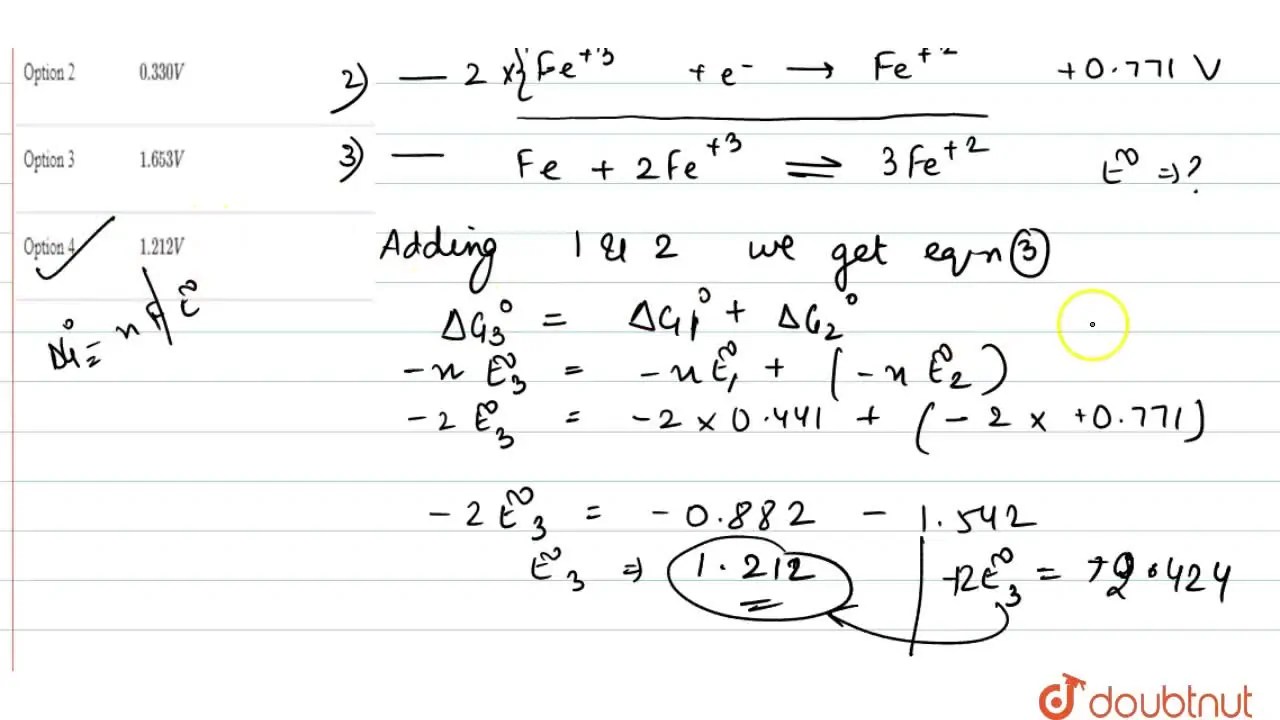 Option 2 0.330V
Option 3 1.653V
Option 4 1.212V
ΔG° = nFE°
2) — 2 x{Fe+3 + e- → Fe+2 +0.771 V
3) — Fe + 2Fe+3 ⇌ 3Fe+2 E° ⇒ ?
Adding 1 & 2 we get eqn ③
ΔG3° = ΔG1° + ΔG2°
-n E°3 = -n E°1 + (-n E°2)
-2 E°3 = -2 x 0.441 + (-2 x +0.771)
-2 E°3 = -0.882 - 1.542
E°3 ⇒ 1.212
-2E°3 = 2.424
doubtnut